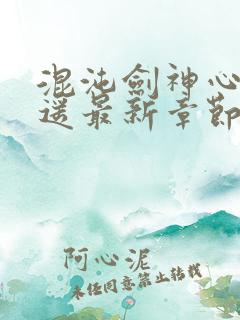 混沌劍神心
逆最新章節
阿心泥
未经同意禁止转载